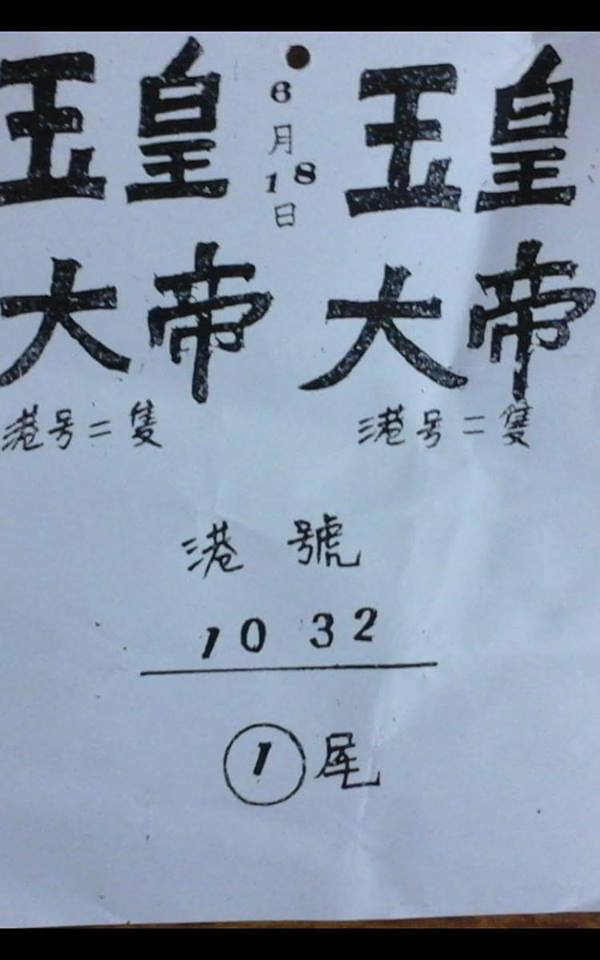 玉皇 6月18日 玉皇
大帝 大帝
港号二隻 港号二隻
港號
10 32
1尾